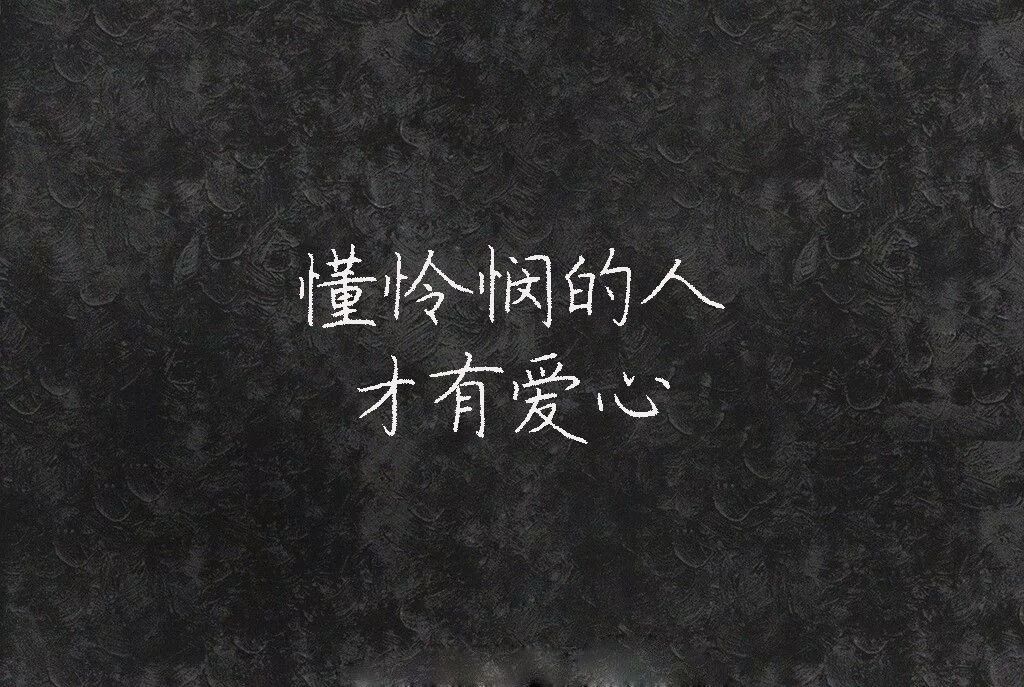 懂怜悯的人
才有爱心